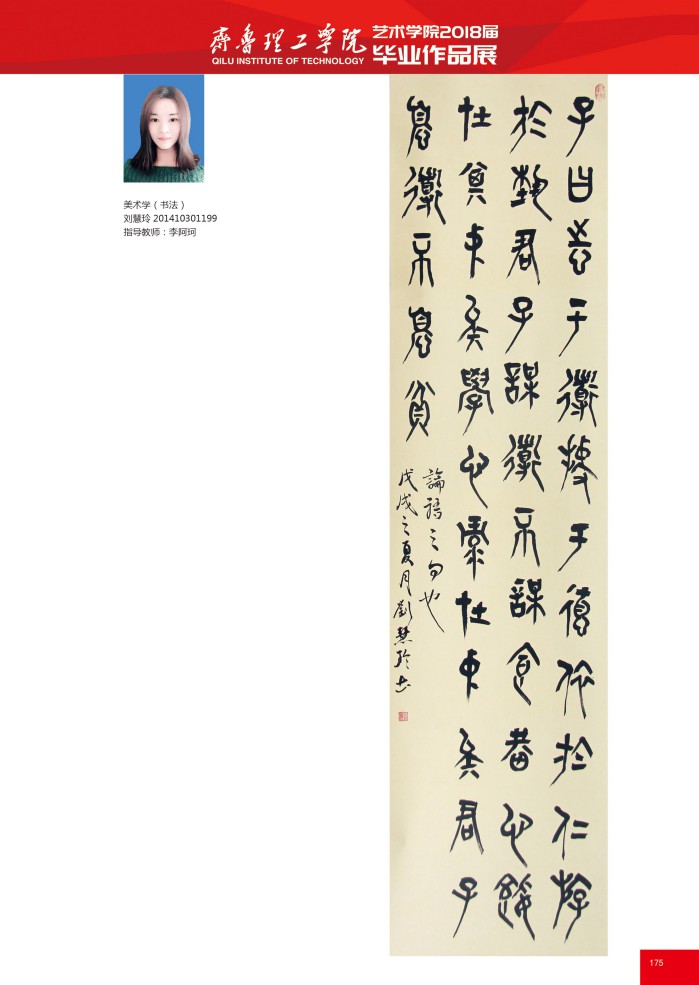 齊魯理工學院
QILU INSTITUTE OF TECHNOLOGY
艺术学院2018届
毕业作品展
美术学（书法）
刘慧玲 201410301199
指导教师：李阿珂
子曰志于道據于德依於仁游
於藝君子謀道不謀食耕也餒
在其中矣學也祿在中矣君子
憂道不憂貧
論語之句也
戊戌之夏月劉慧玲
175